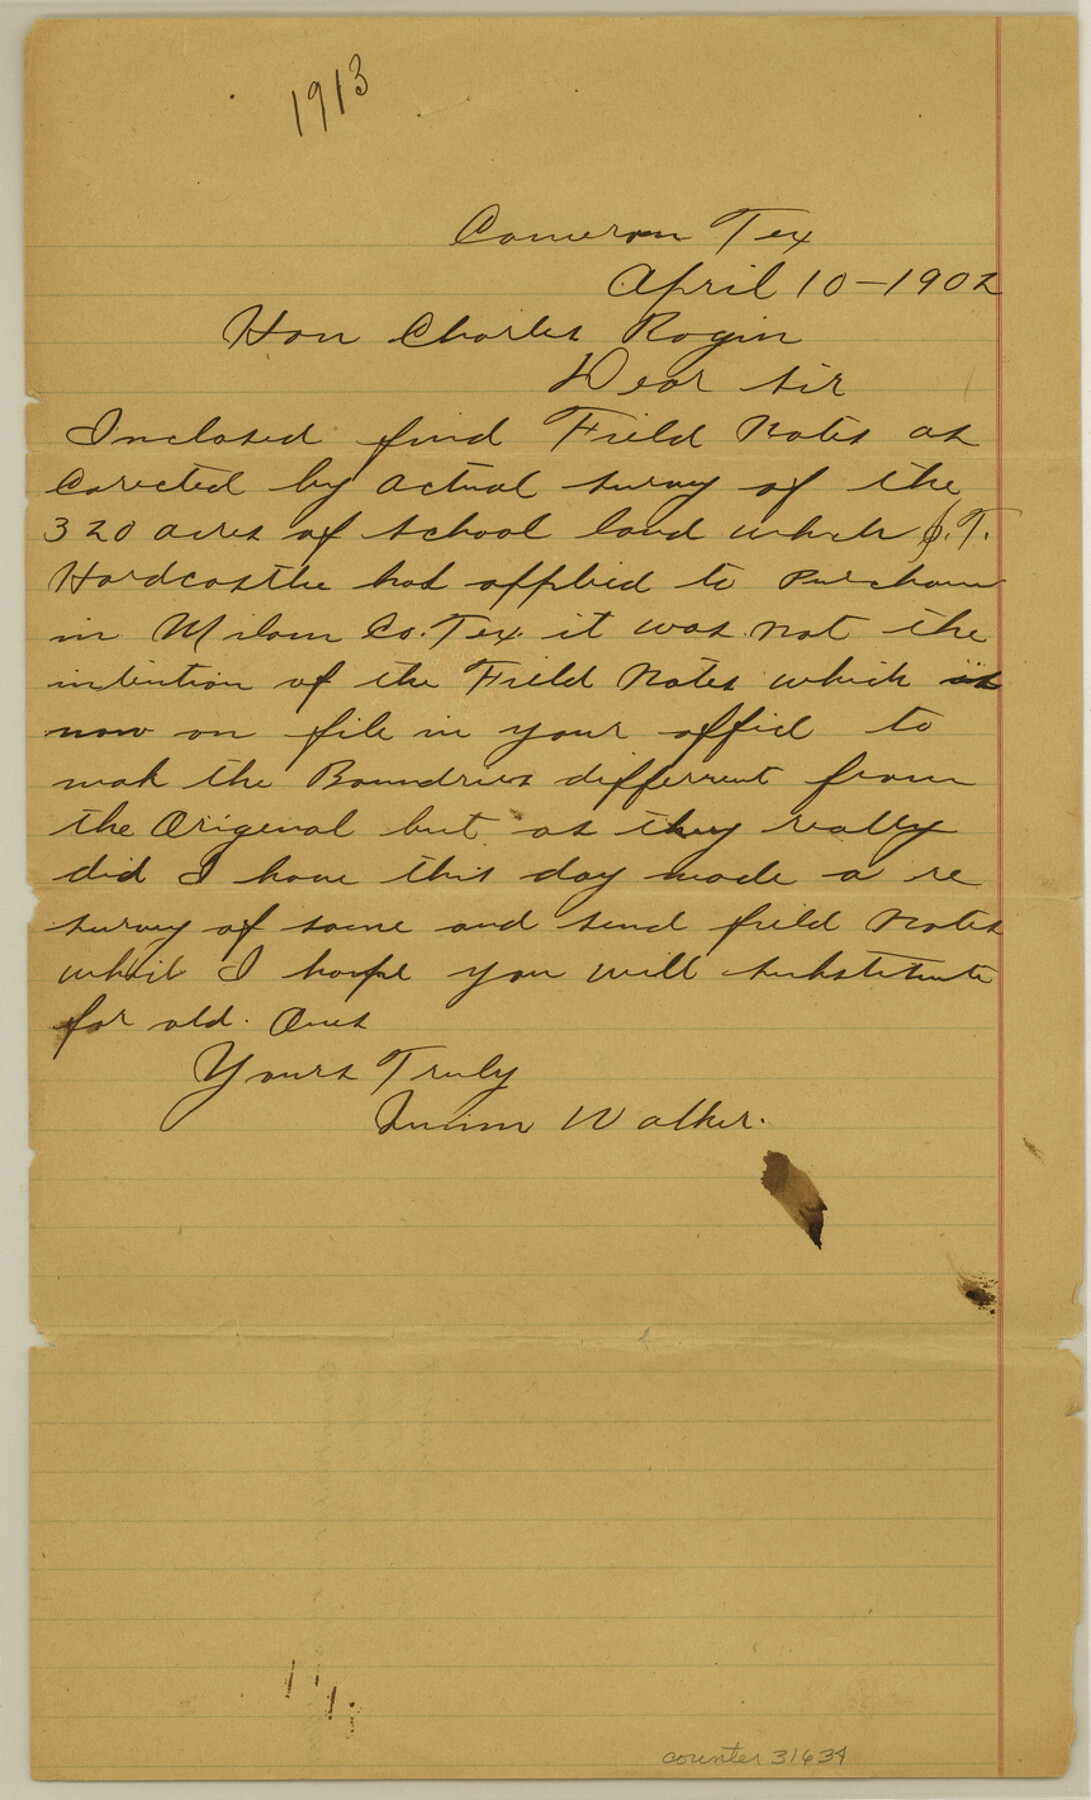 1913
Cameron Tex
April 10-1902
Hon Charles Rogin
Dear Sir
Inclosed find Field Notes as
Corected by actual survey of the
320 acres of school land which J.T.
Hardcastle has applied to Purchase
in Milam Co. Tex. it was not the
intention of the Field Notes which is
now on file in your offid to
mak the Boundries different from
the Origenal but as they really
did I have this day made a re
survey of same and send field Notes
which I hope you will substitute
for old. Ones
Yours Truly
Walker.
counter 31634